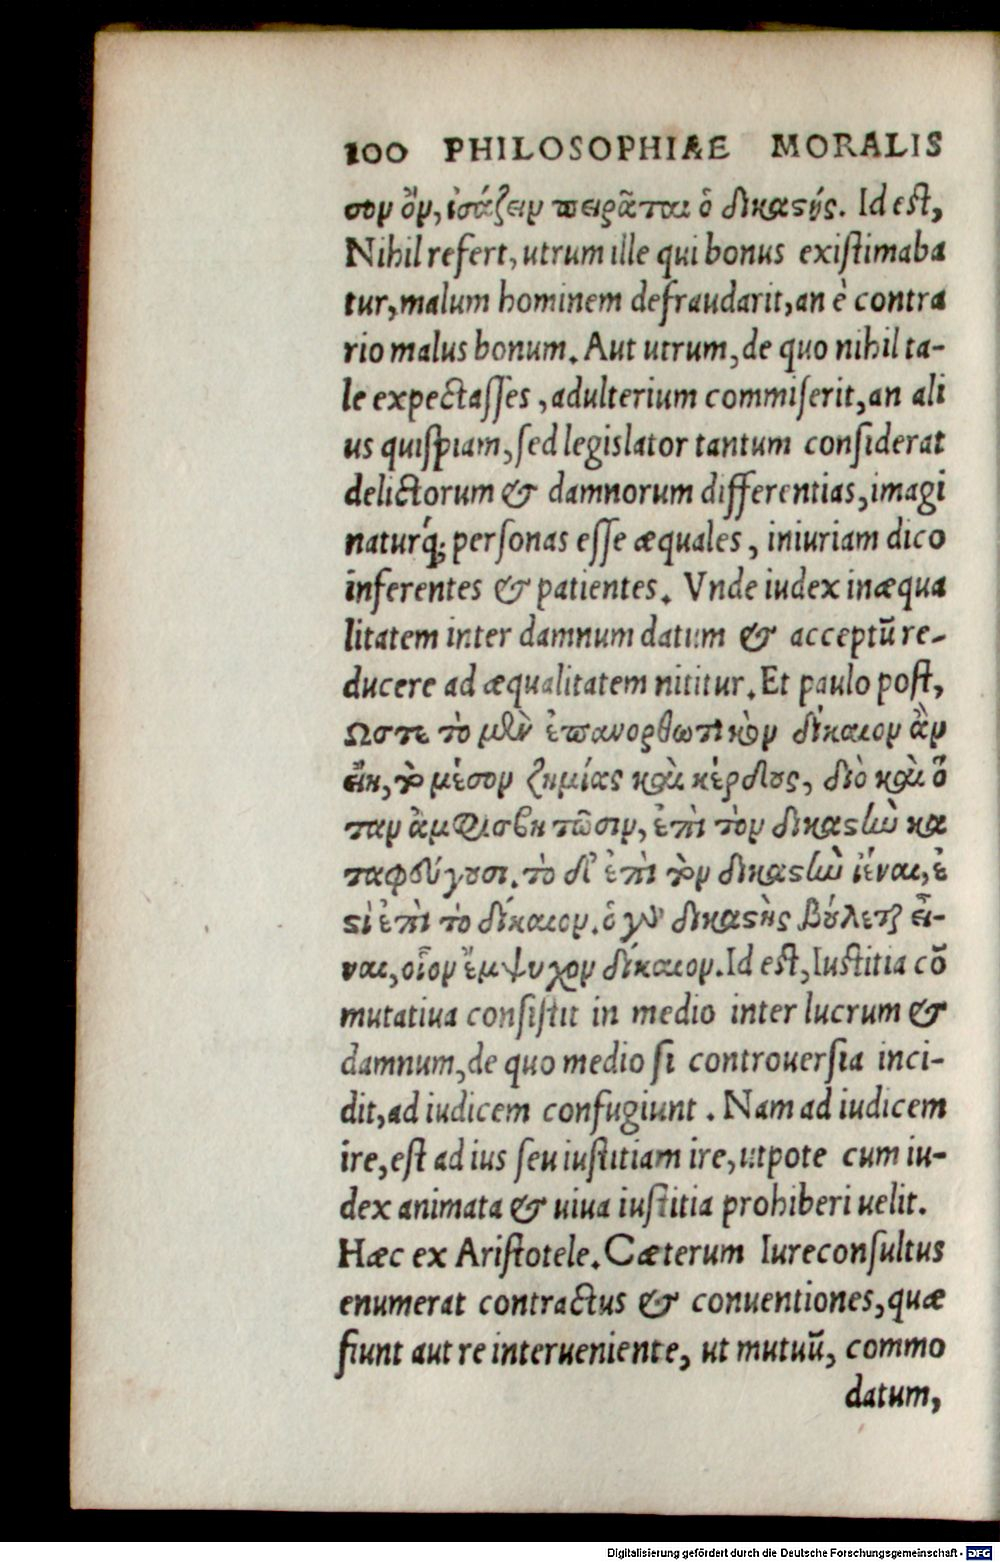 100 PHILOSOPHIAE MORALIS
σον ὂν, ἰσάζειν πειρᾶται ὁ δικαϛής. Id est,
Nihil refert, utrum ille qui bonus existimaba
tur, malum hominem defraudarit, an è contra
rio malus bonum. Aut utrum, de quo nihil ta-
le expectasses, adulterium commiserit, an ali
us quispiam, sed legislator tantum considerat
delictorum & damnorum differentias, imagi
naturq́; personas esse æquales, iniuriam dico
inferentes & patientes. Vnde iudex inæqua
litatem inter damnum datum & acceptū re-
ducere ad æqualitatem nititur. Et paulo post,
Ωστε τὸ μὲν ἐπανορθωτικὸν δίκαιον ἂν
εἴη, τὸ μέσον ζημίας καὶ κέρδους, διὸ καὶ ὅ
ταν ἀμφισβητῶσιν, ἐπὶ τὸν δικαϛὴν κα
ταφεύγουσι. τὸ δ' ἐπὶ τὸν δικαϛὴν ἰέναι, ἐ
ϛὶ ἐπὶ τὸ δίκαιον. ὁ γὰρ δικαϛὴς βούλεται εἶ-
ναι, οἷον ἔμψυχον δίκαιον. Id est, Iustitia cō
mutatiua consistit in medio inter lucrum &
damnum, de quo medio si controuersia inci-
dit, ad iudicem confugiunt. Nam ad iudicem
ire, est ad ius seu iustitiam ire, utpote cum iu-
dex animata & uiua iustitia prohiberi uelit.
Hæc ex Aristotele. Cæterum Iureconsultus
enumerat contractus & conuentiones, quæ
fiunt aut re interueniente, ut mutuū, commo
datum,
Digitalisierung gefördert durch die Deutsche Forschungsgemeinschaft - DFG